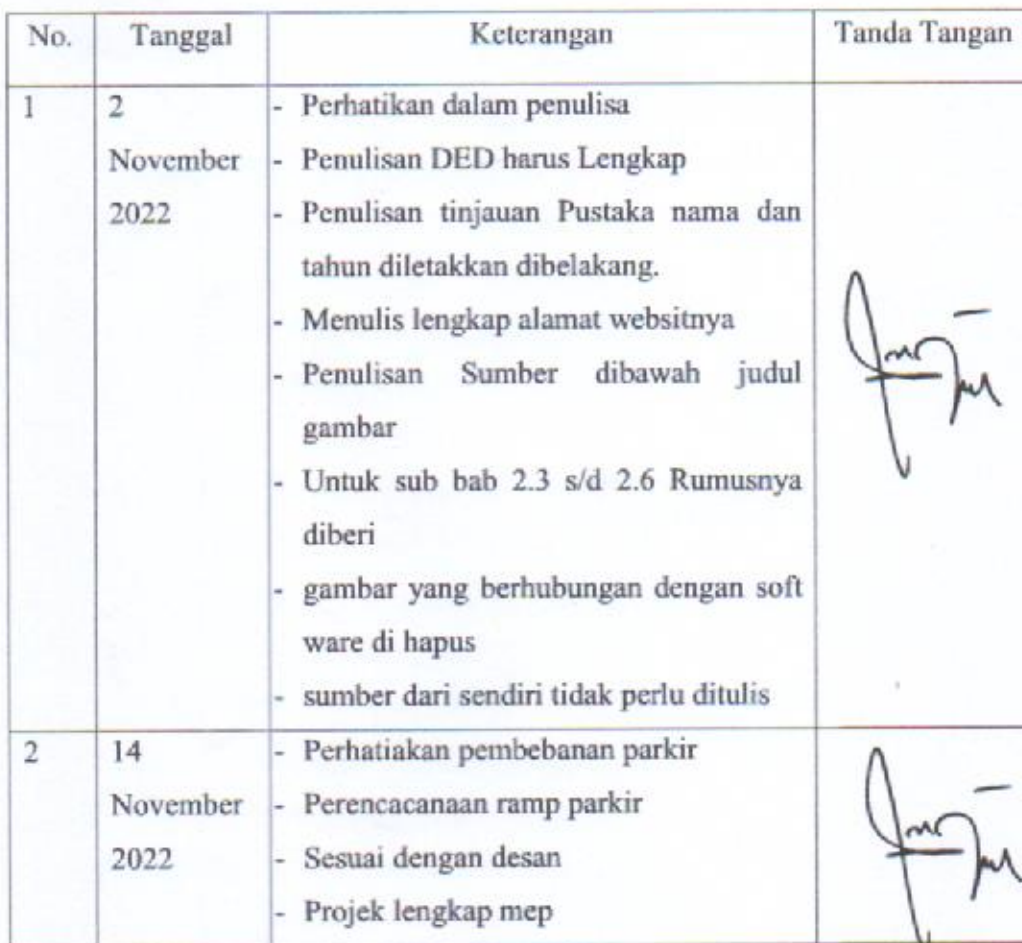 No. Tanggal Keterangan Tanda Tangan
1 2 - Perhatikan dalam penulisa
November - Penulisan DED harus Lengkap
2022 - Penulisan tinjauan Pustaka nama dan
tahun diletakkan dibelakang.
- Menulis lengkap alamat websitnya
- Penulisan Sumber dibawah judul
gambar
- Untuk sub bab 2.3 s/d 2.6 Rumusnya
diberi
- gambar yang berhubungan dengan soft
ware di hapus
- sumber dari sendiri tidak perlu ditulis
2 14 - Perhatiakan pembebanan parkir
November - Perencacanaan ramp parkir
2022 - Sesuai dengan desan
- Projek lengkap mep